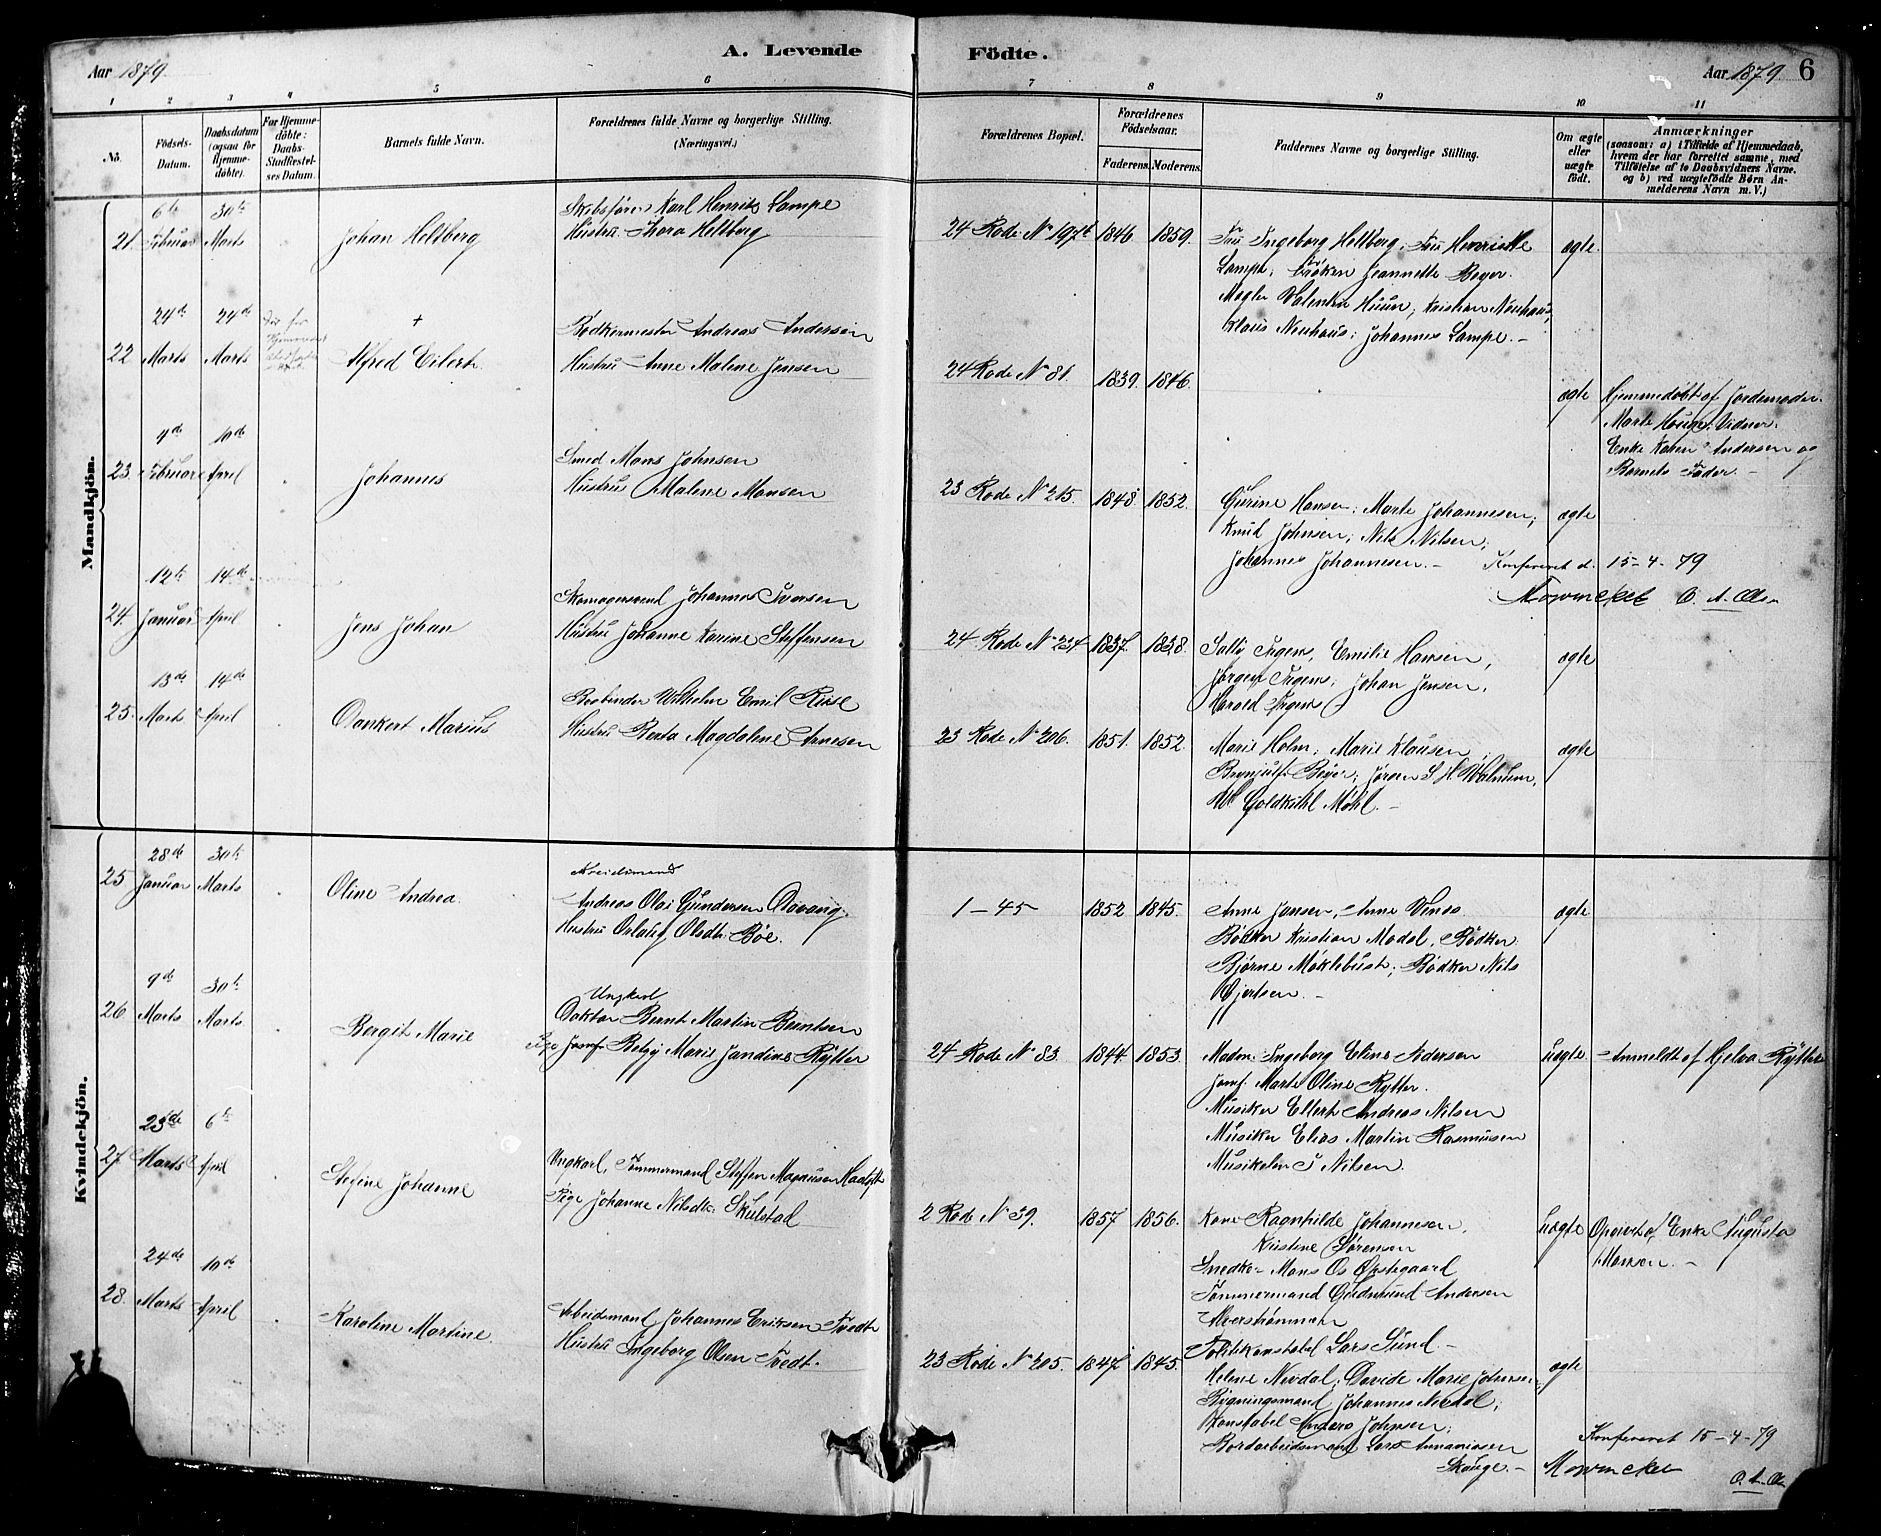 Aar 1879
A. Levende
Födte.
Aar 1879. 6
1 2 3 4 5 6 7 8 9 10 11
No.
Födsels-
Datum.
Daabsdatum
(ogsaa for
Hjemme-
döbte).
For Hjemme-
döbte:
Daabs-
Stadfæstel-
ses Datum.
Barnets fulde Navn.
Forældrenes fulde Navne og borgerlige Stilling.
(Næringsvei.)
Forældrenes Bopæl.
Forældrenes
Födselsaar.
Faderens. Moderens.
Faddernes Navne og borgerlige Stilling.
Om ægte
eller
uægte
födt.
Anmærkninger
(saasom: a) i Tilfælde af Hjemmedaab,
hvem der har forrettet samme, med
Tilföielse af to Daabsvidners Navne,
og b) ved uægtefödte Börn An-
melderens Navn m. V.)
Mandkjön.
21. 6te Februar 30te Marts
Johan Heltberg
Skibsfører Karl Henrik Lampe
Hustru Thora Heltberg
24 Rode No 197b 1846 1859.
Fru Ingeborg Heltberg, Fru Henriette
Lampe; Frøken Jeannette Beyer.
Mægler Valentin Huun; Kristian Neuhaus,
Klaus Neuhaus; Johannes Lampe. –
ægte.
22 24de Marts 24de Marts
+
Alfred Eilert.
Bødkermester Andreas Andersen
Hustru Anne Malene Jensen
24 Rode No 81. 1839. 1846.
ægte
Hjemmedøbt af Jordemoder
Marte Hauge. Vidner.
Enke Karen Andersen og
Barnets Fader. –
23. 4de Februar 10de April
Johannes
Smed Mons Johnsen
Hustru Malene Monsen
23 Rode No 215. 1848. 1852.
Gurine Hansen; Marte Johannesen;
Knud Johnsen; Nils Nilsen;
Johannes Johannesen. –
ægte
Konfereret d. 15-4-79
Mowinckel O. A. Olsen
24. 12te Januar 14de April
Jens Johan
Skomagersvend Johannes Iversen
Hustru Johanne Karine Steffensen
24. Rode No 234 1837. 1838.
Sally Irgens, Emilie Hansen,
Jørgen Irgens; Johan Jensen,
Harald Irgens
ægte
25. 13de Marts 14de April
Dankert Marius
Bogbinder Wilhelm Emil Riise
Hustru Berta Magdalene Arnesen
23 Rode No 206. 1851. 1852.
Marie Holm; Marie Klausen
Brynjulf Beyer; Jørgen S. H. Walnum.
Goldkuhl Møhl. –
ægte
Kvindekjön.
25 28de Januar 30te Marts
Oline Andrea.
Arbeidsmand
Andreas Olai Gundersen
Hustru Olsdtr Bøe.
1 – 45 1852 1845.
Anne Jansen, Anne
Bødker Kristian Modal, Bødker
Bjørne Møklebust; Bødker Nils
Gjertsen. –
ægte
26 9de Marts 30te Marts
Bergit Marie
Ungkarl
Doktor Bernt Martin Berntsen
Pige Jomf. Betzy Marie Jandine Rytter
24 Rode No 83. 1844 1853.
Madm: Ingeborg Eline Andersen
Jomf. Marte Oline Rytter.
Musiker Ellert Andreas Nilsen
Musiker Elias Martin Rasmusen
Musikelev J Nilsen.
uægte
Anmeldt af Helva Rytter
27 23de Marts 6te April
Stefine Johanne
Ungkarl, Tømmermand Steffen Magnusen
Pige Johanne Nilsdtr. Skulstad
2 Rode No 39. 1857 1856.
Kone Ragnhilde Johannesen,
Kristine Sørensen
Snedker Mons Os Opstegaard
Tømmermand Gudmund Andersen
Alverstrømmen
Politikonstabel Lars Sund –
uægte
Opgivet af Enke Augusta
Monsen. –
28. 24de Marts 10de April
Karoline Martine.
Arbeidsmand Johannes Eriksen Tvedt
Hustru Ingeborg Olsen Tvedt.
23 Rode No 205. 1847 1845.
Helene Nevdal; Davide Marie Johansen;
Bygningsmand Johannes Nevdal;
Konstabel Anders Johnsen;
Bordarbeidsmand Lars Annaniasen
Skauge. –
ægte
Konfereret 15-4-79
Mowinckel O. A. Ols